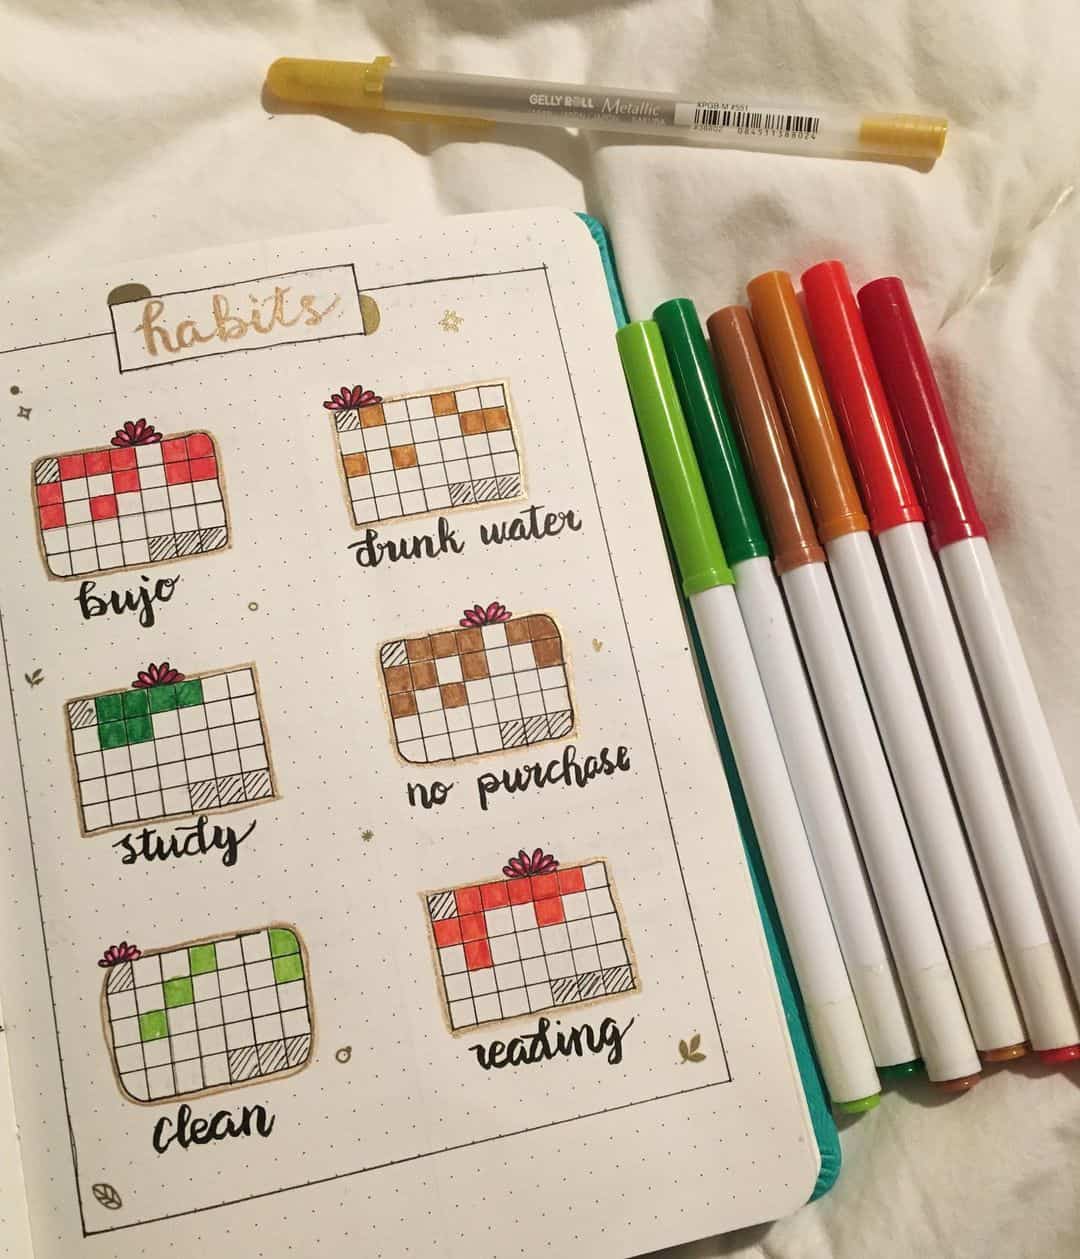 GELLY ROLL Metallic
XPGB-M #551
084511388024
habits
bujo
drink water
study
no purchase
clean
reading